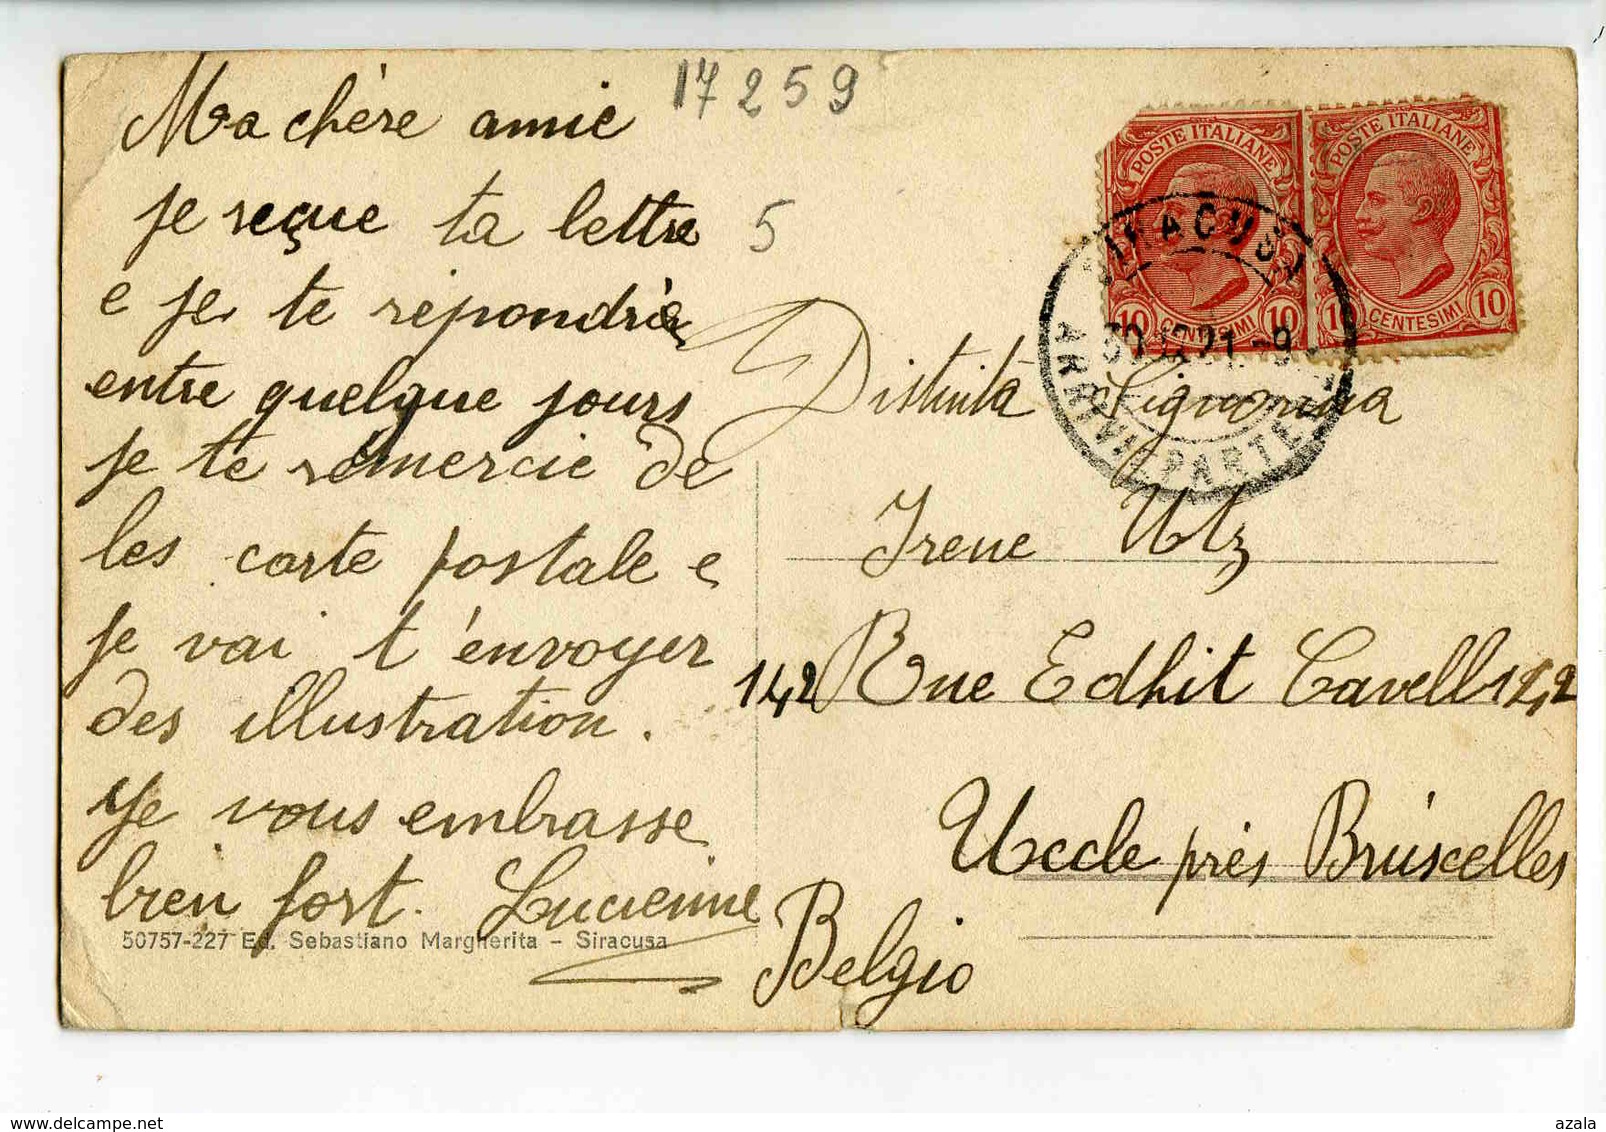 17259
Ma chère amie
je reçue ta lettre
5
e je te repondrè
entre quelque jours
je te remercie de
les carte postale e
je vai t'envoyer
des illustration.
Je vous embrasse
bien fort. Lucienne
50757-227 Ed. Sebastiano Margherita - Siracusa
POSTE ITALIANE
10 CENTESIMI 10
POSTE ITALIANE
10 CENTESIMI 10
SIRACUSA
21 -9
ARRIVI E PARTENZE
Distinità Signorina
Irene Utz
142 Rue Edhit Cavell 142
Uccle près Bruscelles
Belgio
delcampe.net
azala